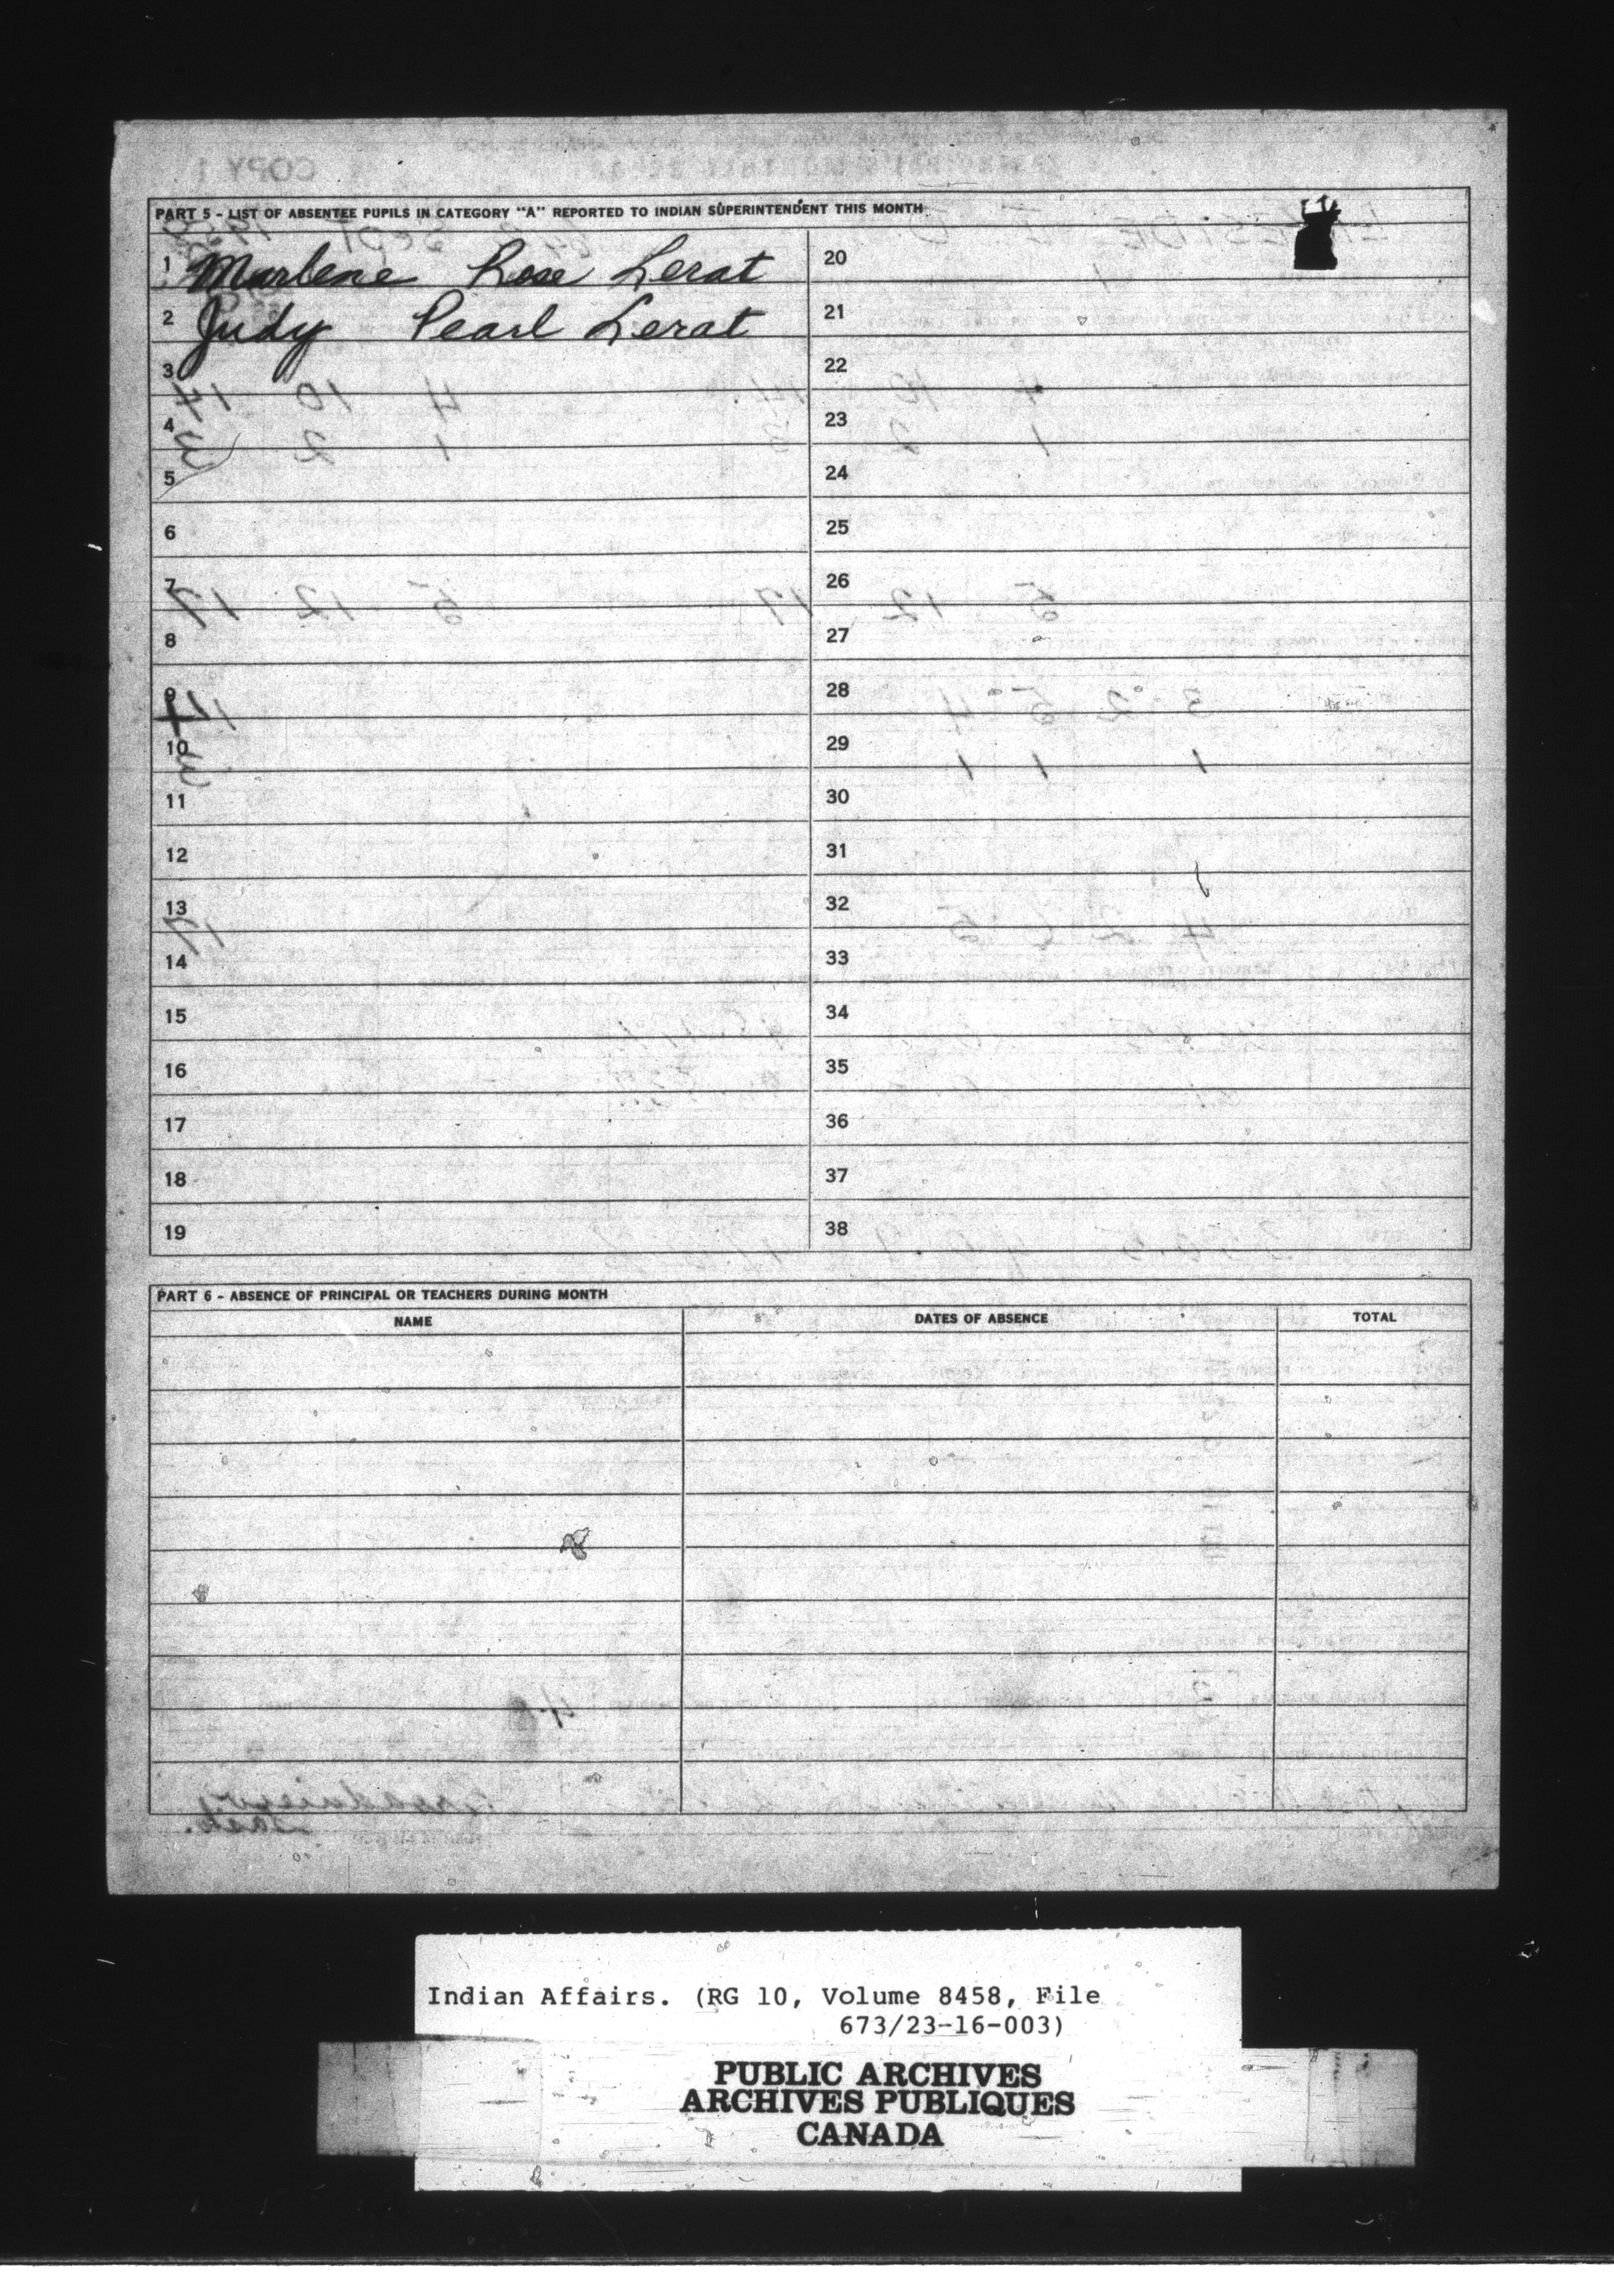 PART 5 - LIST OF ABSENTEE PUPILS IN CATEGORY "A" REPORTED TO INDIAN SUPERINTENDENT THIS MONTH
1 Marlene Rose Lerat
2 Judy Pearl Lerat
3
4
5
6
7
8
9
10
11
12
13
14
15
16
17
18
19
20
21
22
23
24
25
26
27
28
29
30
31
32
33
34
35
36
37
38
PART 6 - ABSENCE OF PRINCIPAL OR TEACHERS DURING MONTH
NAME DATES OF ABSENCE TOTAL
Indian Affairs. (RG 10, Volume 8458, File
673/23-16-003)
PUBLIC ARCHIVES
ARCHIVES PUBLIQUES
CANADA